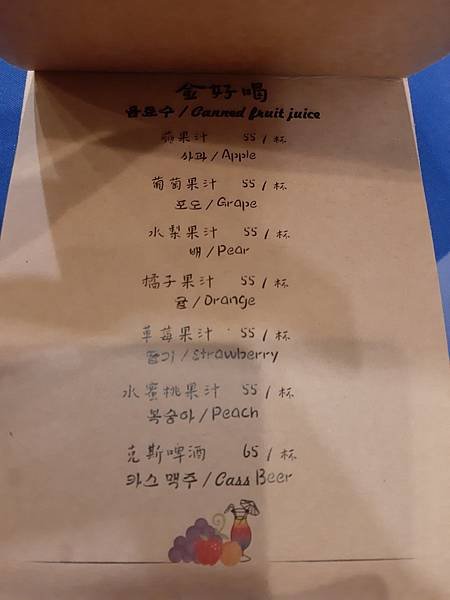 金好喝
음료수 / Canned fruit juice
蘋果汁 55 / 杯
사과 / Apple
葡萄果汁 55 / 杯
포도 / Grape
水梨果汁 55 / 杯
배 / Pear
橘子果汁 55 / 杯
귤 / Orange
草莓果汁 55 / 杯
딸기 / Strawberry
水蜜桃果汁 55 / 杯
복숭아 / Peach
克斯啤酒 65 / 杯
카스 맥주 / Cass Beer